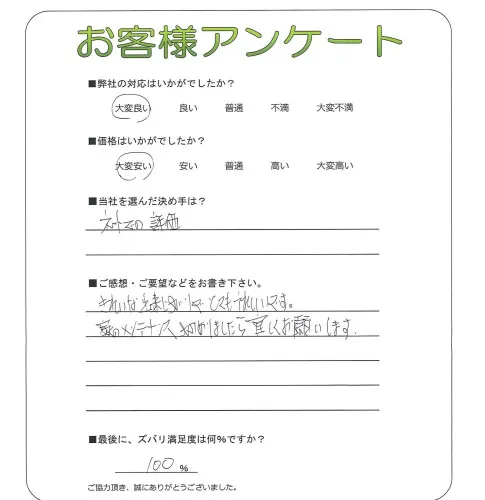 お客様アンケート
■弊社の対応はいかがでしたか？
大変良い 良い 普通 不満 大変不満
■価格はいかがでしたか？
大変安い 安い 普通 高い 大変高い
■当社を選んだ決め手は？
ネットでの 評価
■ご感想・ご要望などをお書き下さい。
きれいな とても うれしいです。
家のメンテナンス ましたら宜しくお願いします.
■最後に、ズバリ満足度は何％ですか？
100 %
ご協力頂き、誠にありがとうございました。